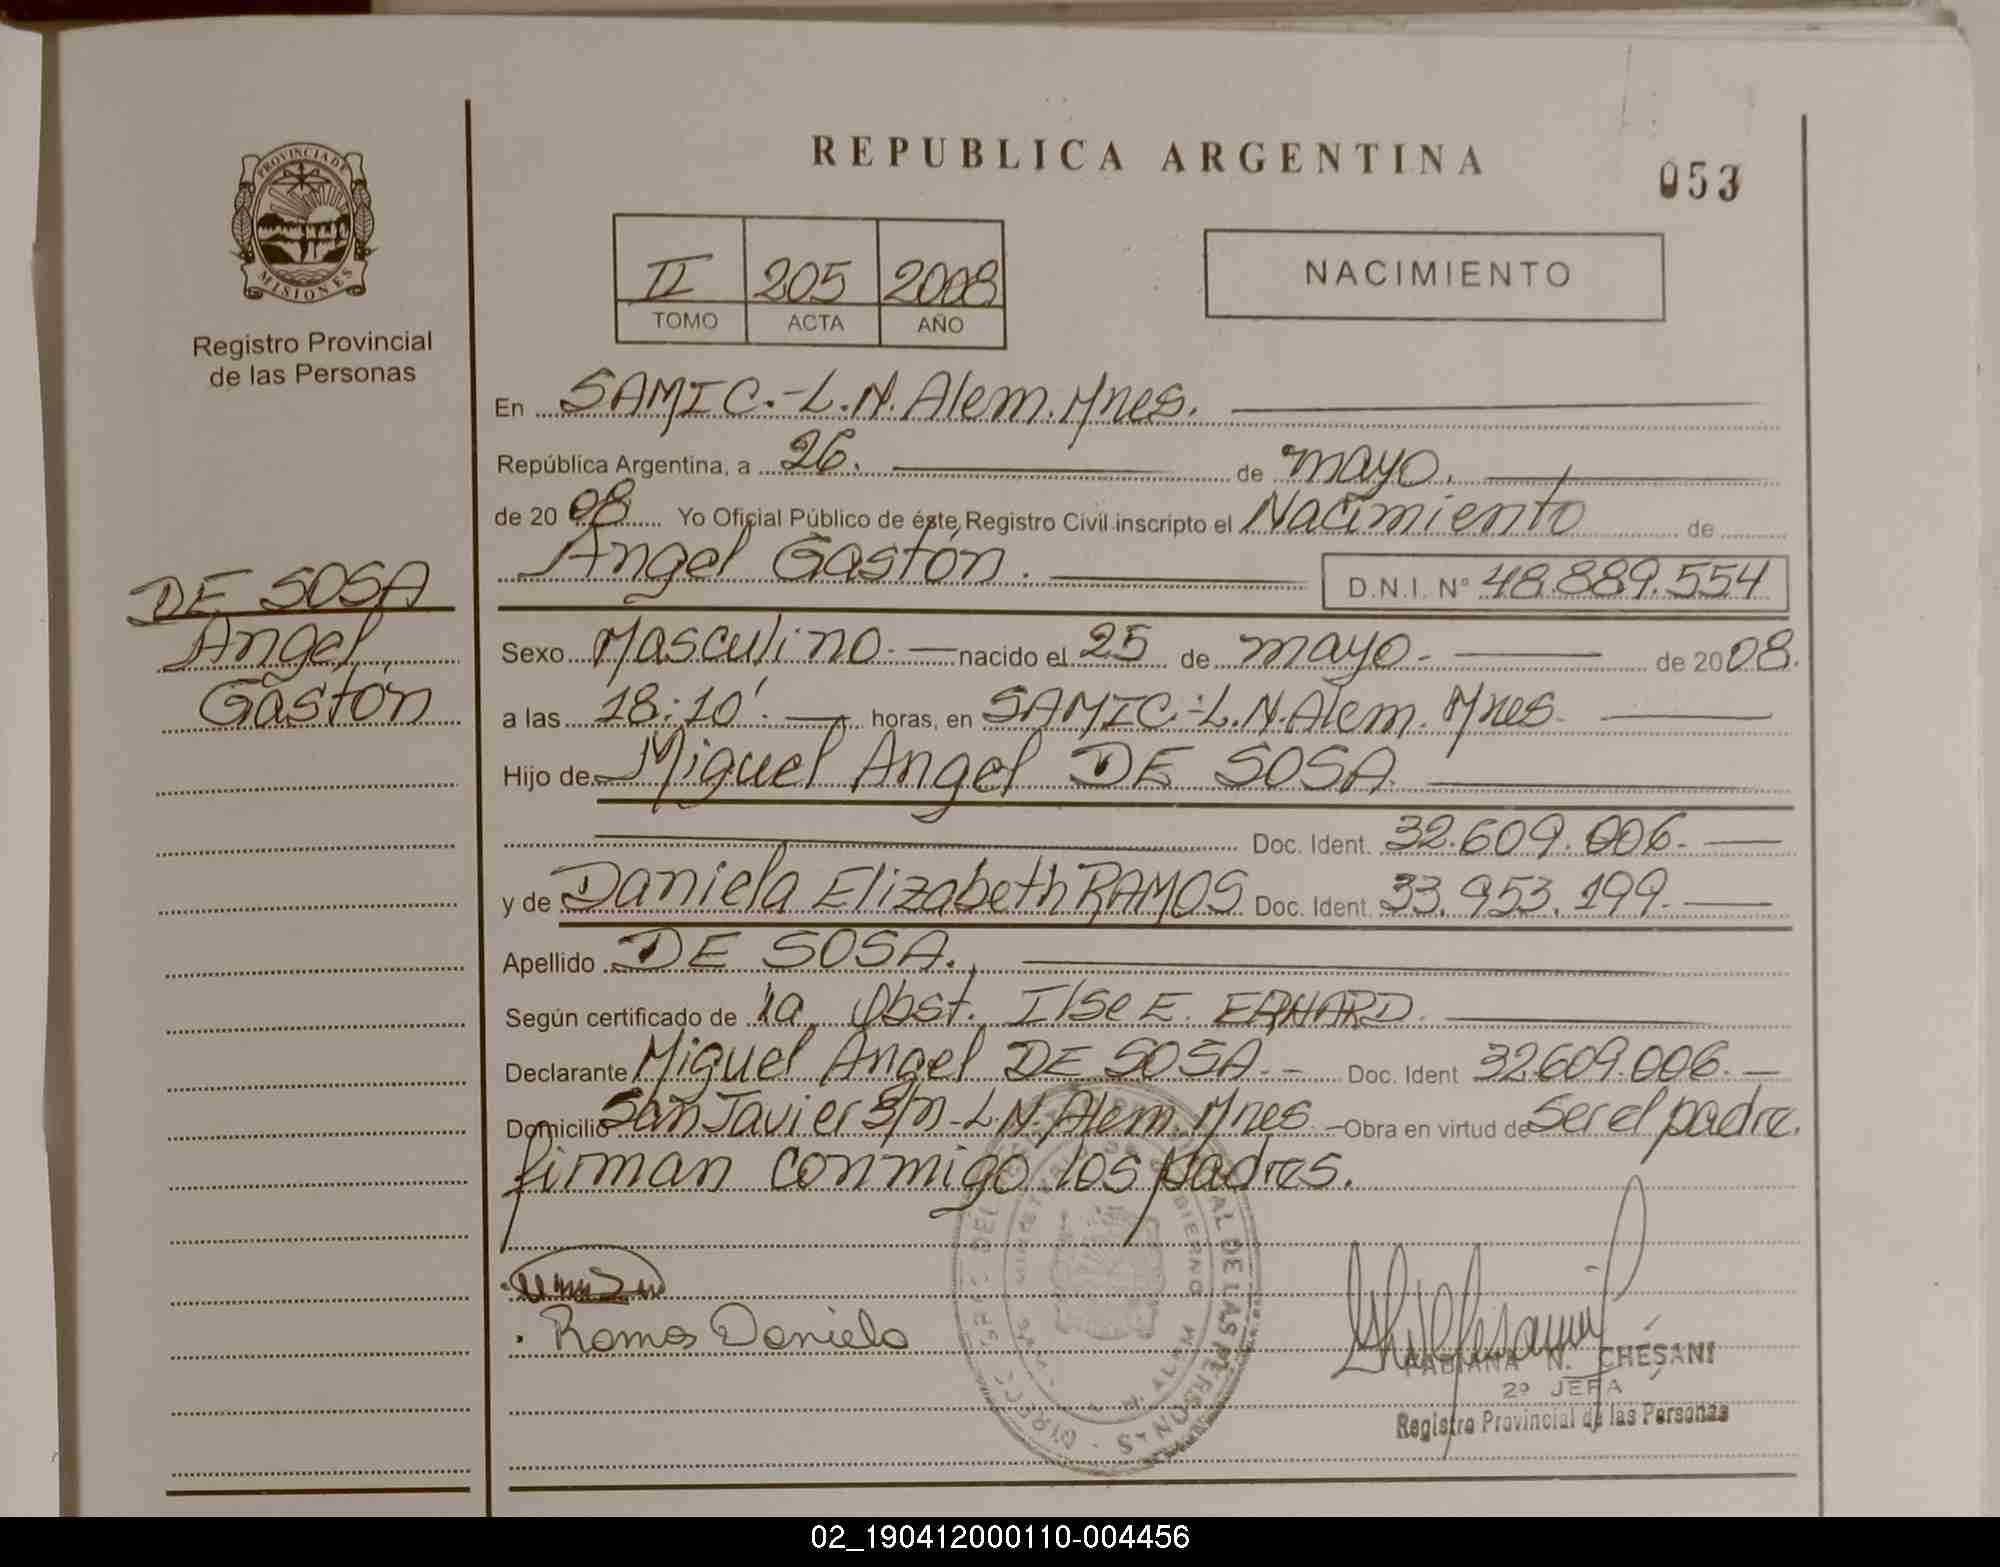 PROVINCIA DE
MISIONES
Registro Provincial
de las Personas
DE SOSA
Angel
Gastón
REPUBLICA ARGENTINA
053
II 205 2008
TOMO ACTA AÑO
NACIMIENTO
En SAMIC.-L.N. Alem. Mnes.
República Argentina, a 26. de mayo.
de 2008 Yo Oficial Público de éste Registro Civil inscripto el Nacimiento de
Angel Gastón. D.N.I. Nº 48.889.554
Sexo Masculino.- nacido el 25 de mayo.- de 2008.
a las 18:10'. horas, en SAMIC.-L.N. Alem. Mnes.
Hijo de Miguel Angel DE SOSA.
Doc. Ident. 32.609.006.-
y de Daniela Elizabeth RAMOS Doc. Ident. 33.953.199.-
Apellido DE SOSA.
Según certificado de la Obst. Ilse E. ERHARD.
Declarante Miguel Angel DE SOSA.- Doc. Ident 32.609.006.-
Domicilio San Javier S/n-L.N. Alem. Mnes. -Obra en virtud de ser el padre.
firman conmigo los padres.
Ramos Daniela
FABIANA N. CHESANI
2º JEFA
Registro Provincial de las Personas
02_190412000110-004456